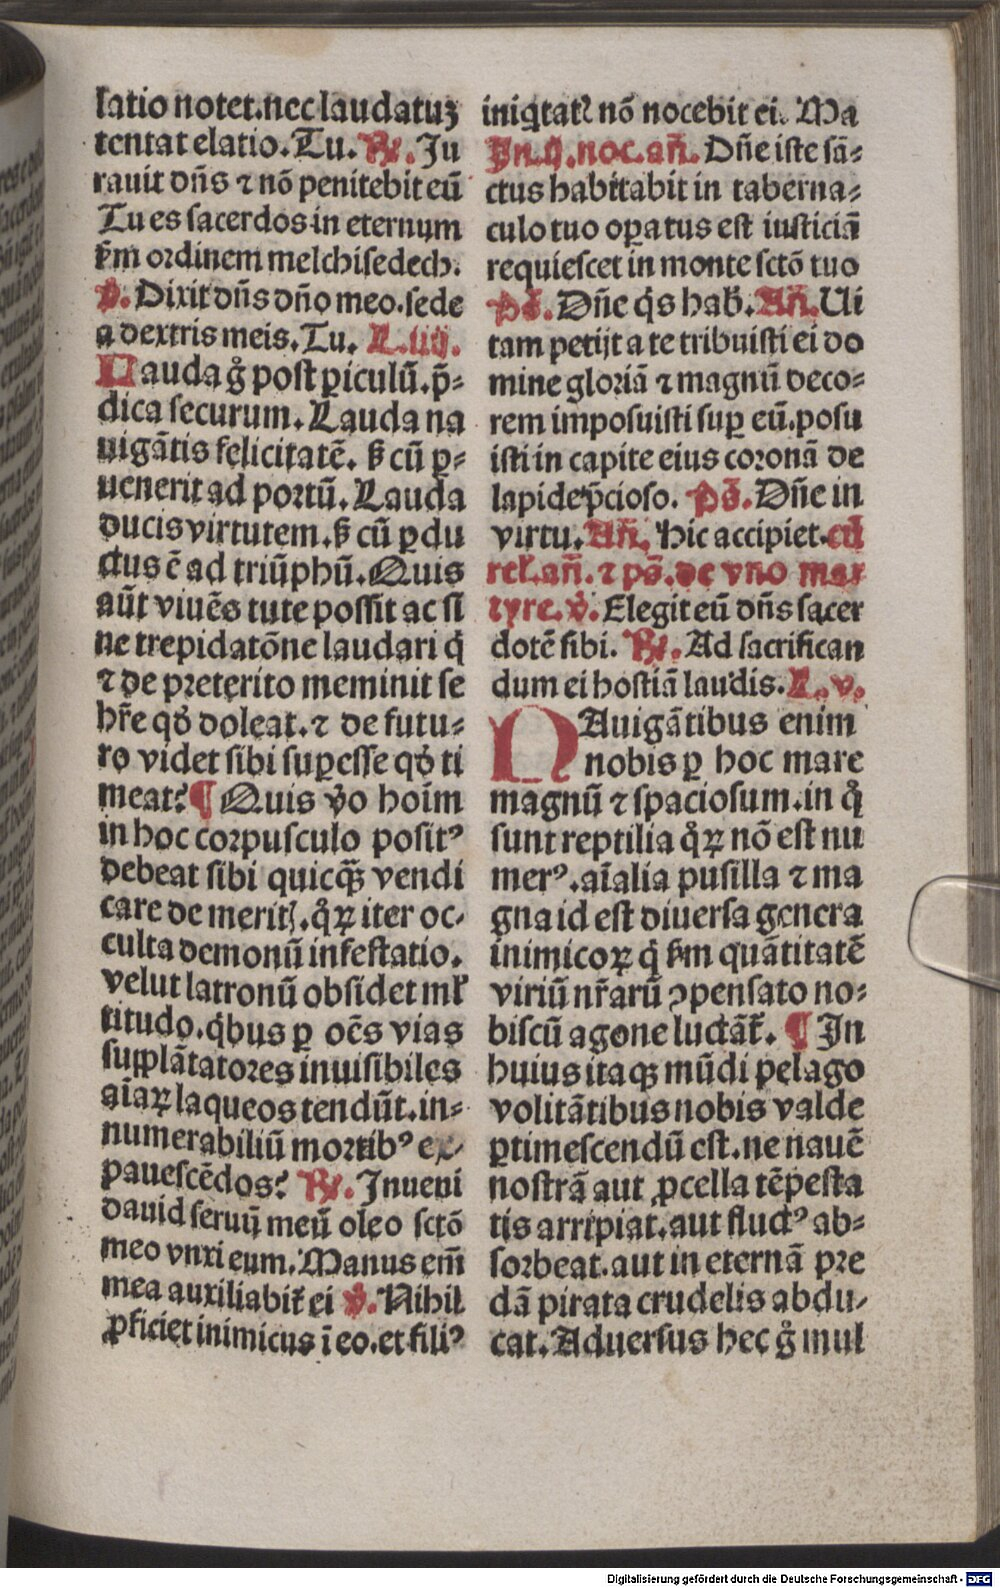 latio notet.nec laudatuʒ
tentat elatio.Tu. R̷. Ju
rauit dn̄s ⁊ nō penitebit eū
Tu es sacerdos in eternum
ẜm ordinem melchisedech.
v̓. Dixit dn̄s dn̄o meo.sede
a dextris meis. Tu. L.iiij.
Lauda g̊ post ꝑiculū.p̄-
dica securum. Lauda na
uigātis felicitatē. ẜ cū ꝑ-
uenerit ad portū. Lauda
ducis virtutem.ẜ cū ꝑdu
ctus ē ad triūphū. Quis
aūt viuēs tute possit ac si
ne trepidatōne laudari q̇
⁊ de preterito meminit se
hr̄e qḋ doleat.⁊ de futu-
ro videt sibi suꝑesse qḋ ti
meat? ¶ Quis v̓o hoīm
in hoc corpusculo positꝰ
debeat sibi quicqꝫ vendi
care de meritꝭ.q̊ꝝ iter oc-
culta demonū infestatio.
velut latronū obsidet ml̓
titudo.q̇bus ꝑ oēs vias
supplātatores inuisibiles
aīaꝝ laqueos tendūt.in-
numerabiliū mortibꝰ ex-
pauescēdos? R̷. Inueni
dauid seruū meū oleo sctō
meo vnxi eum. Manus em̄
mea auxiliabit̓ ei v̓. Nihil
ꝓficiet inimicus ī eo.et filiꝰ
iniq̇tatꝭ nō nocebit ei. Ma
Jn.ij.noc.an̄. Dn̄e iste sā-
ctus habitabit in taberna-
culo tuo oꝑatus est iusticiā
requiescet in monte sctō tuo
Ps̄. Dn̄e q̇s hab̓. An̄. Ui
tam petijt a te tribuisti ei do
mine gloriā ⁊ magnū deco-
rem imposuisti suꝑ eū.posu
isti in capite eius coronā de
lapide p̄cioso. Ps̄. Dn̄e in
virtu. An̄. Hic accipiet. cū
rel̓.an̄.⁊ ps̄.de vno mar
tyre. v̓. Elegit eū dn̄s sacer
dotē sibi. R̷. Ad sacrifican
dum ei hostiā laudis. L. v.
NAuigātibus enim
nobis ꝑ hoc mare
magnū ⁊ spaciosum.in q̊
sunt reptilia q̊ꝝ nō est nu
merꝰ.aīalia pusilla ⁊ ma
gna id est diuersa genera
inimicoꝝ q̇ ẜm quātitatē
viriū nr̄arū ꝯpensato no-
biscū agone luctāt̓. ¶ In
huius itaqꝫ mūdi pelago
volitātibus nobis valde
ꝑtimescendū est.ne nauē
nostrā aut ꝓcella tēpesta
tis arripiat.aut fluctꝰ ab-
sorbeat.aut in eternā pre
dā pirata crudelis abdu-
cat. Aduersus hec g̊ mul
Digitalisierung gefördert durch die Deutsche Forschungsgemeinschaft - DFG